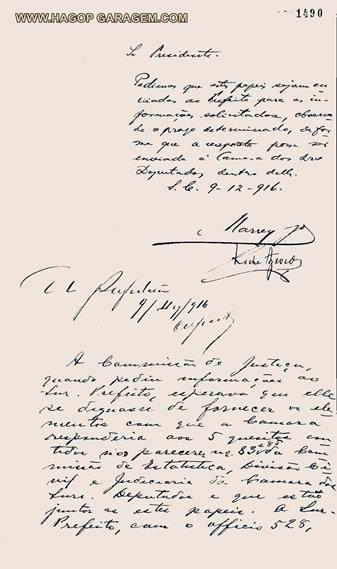 WWW.HAGOP GARAGEM.COM
1490
Sr Presidente.
Pedimos que estes papeis sejam en
viados ao Prefeito para as in-
formações solicitadas, observa
do o prazo determinado, de for
ma que a resposta possa ser
enviada á Camara dos Srs
Deputados dentro delle.
S. C. 9-12-916.
Marrey Jr
A Commissão de Justiça,
quando pediu informações ao
Snr. Prefeito, esperava que elle
se dignasse de fornecer os ele
mentos com que a Camara
responderia aos 5 quesitos con
tidos nos pareceres da Com
missão de Estatistica, Divisão Ci
vil e Judiciaria da Camara dos
Snrs. Deputados e que estão
juntos a estes papeis. O Snr.
Prefeito, com o officio 528,